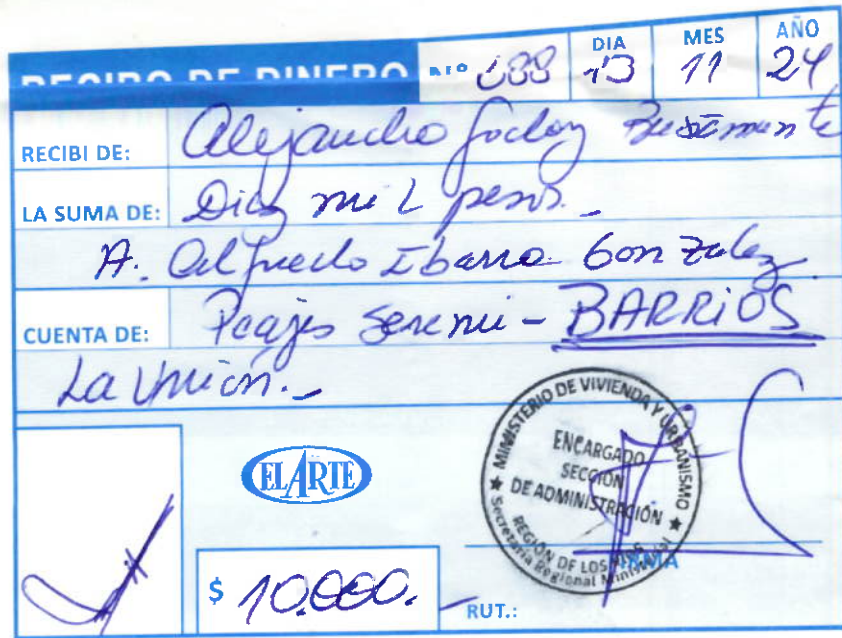 RECIBO DE DINERO Nº 688 DIA 13 MES 11 AÑO 24
RECIBI DE: Alejandro Godoy Bustamante
LA SUMA DE: Diez mil pesos.-
A. Alfredo Ibarra Gonzalez
CUENTA DE: Peajes Seremi - BARRIOS
La Unión.-
MINISTERIO DE VIVIENDA Y URBANISMO
ENCARGADO
SECCIÓN
DE ADMINISTRACIÓN
REGIÓN DE LOS RIOS
Secretaría Regional Ministerial
EL ARTE
FIRMA
$ 10.000.-
RUT.: